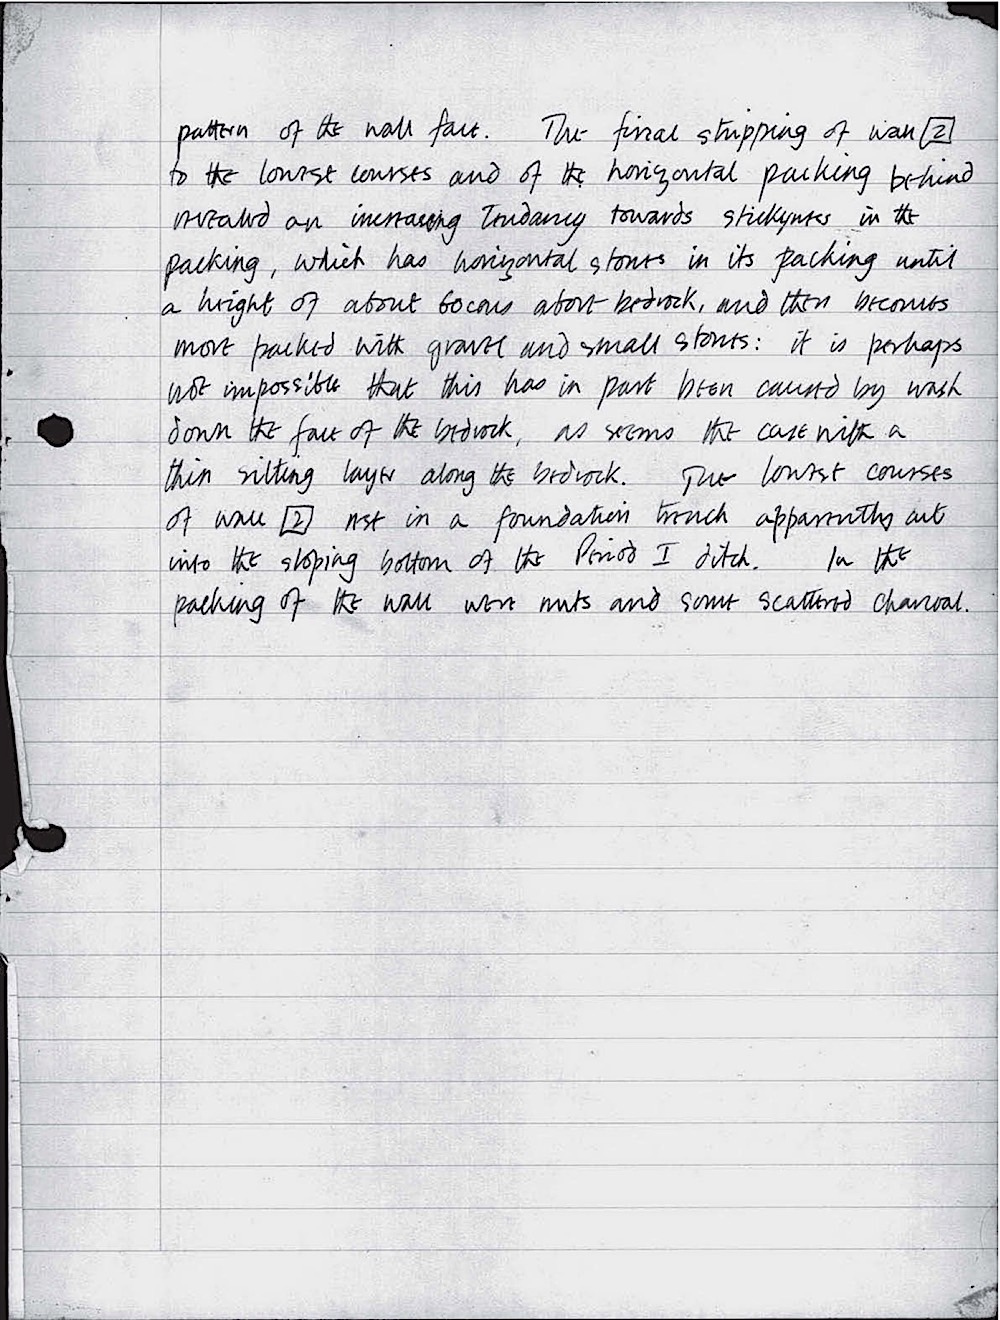 pattern of the wall face. The final stripping of wall [2]
to the lowest courses and of the horizontal packing behind
revealed an increasing tendancy towards stickyness in the
packing, which has horizontal stones in its packing until
a height of about 60cms above bedrock, and then becomes
more packed with gravel and small stones: it is perhaps
not impossible that this has in part been caused by wash
down the face of the bedrock, as seems the case with a
thin silting layer along the bedrock. The lowest courses
of wall [2] rest in a foundation trench apparently cut
into the sloping bottom of the Period I ditch. In the
packing of the wall were nuts and some scattered charcoal.